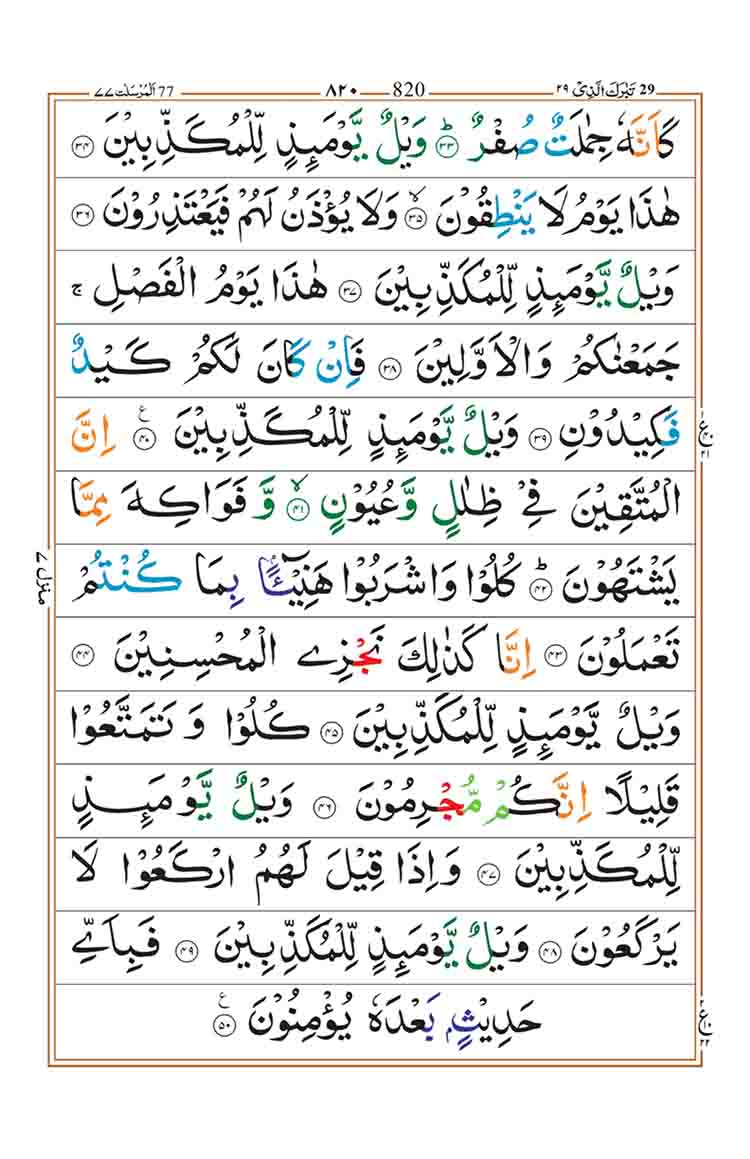 29 تَبٰرَكَ الَّذِىْ ٢٩ 820 ٨٢٠ 77 اَلْمُرْسَلٰت ٧٧
كَاَنَّهٗ جِمٰلَتٌ صُفْرٌ ؕ ٣٣ وَيْلٌ يَّوْمَئِذٍ لِّلْمُكَذِّبِيْنَ ٣٤
هٰذَا يَوْمُ لَا يَنْطِقُوْنَ ۙ ٣٥ وَلَا يُؤْذَنُ لَهُمْ فَيَعْتَذِرُوْنَ ٣٦
وَيْلٌ يَّوْمَئِذٍ لِّلْمُكَذِّبِيْنَ ٣٧ هٰذَا يَوْمُ الْفَصْلِ ۚ
جَمَعْنٰكُمْ وَالْاَوَّلِيْنَ ٣٨ فَاِنْ كَانَ لَكُمْ كَيْدٌ
فَكِيْدُوْنِ ٣٩ وَيْلٌ يَّوْمَئِذٍ لِّلْمُكَذِّبِيْنَ ٤٠ ع اِنَّ
الْمُتَّقِيْنَ فِىْ ظِلٰلٍ وَّعُيُوْنٍ ۙ ٤١ وَّ فَوَاكِهَ مِمَّا
يَشْتَهُوْنَ ؕ ٤٢ كُلُوْا وَاشْرَبُوْا هَنِيْٓـئًا ۢ بِمَا كُنْتُمْ
تَعْمَلُوْنَ ٤٣ اِنَّا كَذٰلِكَ نَجْزِى الْمُحْسِنِيْنَ ٤٤
وَيْلٌ يَّوْمَئِذٍ لِّلْمُكَذِّبِيْنَ ٤٥ كُلُوْا وَتَمَتَّعُوْا
قَلِيْلًا اِنَّكُمْ مُّجْرِمُوْنَ ٤٦ وَيْلٌ يَّوْمَئِذٍ
لِّلْمُكَذِّبِيْنَ ٤٧ وَاِذَا قِيْلَ لَهُمُ ارْكَعُوْا لَا
يَرْكَعُوْنَ ٤٨ وَيْلٌ يَّوْمَئِذٍ لِّلْمُكَذِّبِيْنَ ٤٩ فَبِاَىِّ
حَدِيْثٍ ۢ بَعْدَهٗ يُؤْمِنُوْنَ ٥٠ ع
منزل ٧